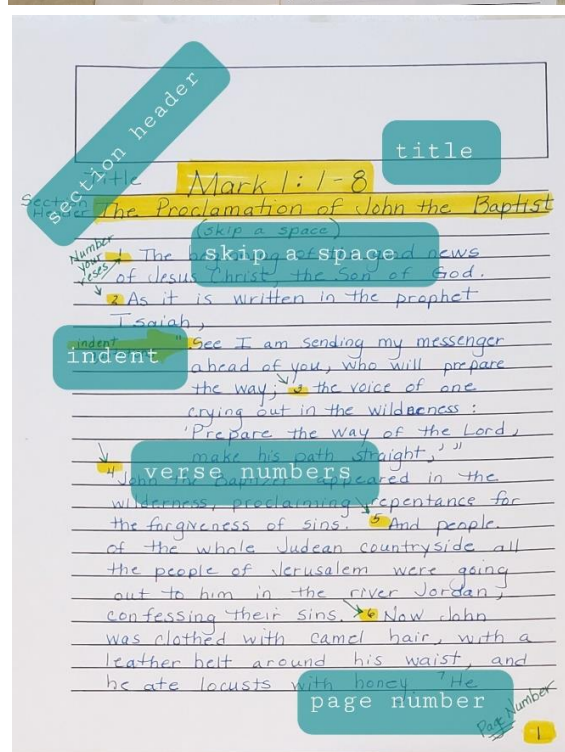 section header
title
Title
Mark 1: 1-8
Section Header The Proclamation of John the Baptist
(skip a space)
skip a space
Number your
1 The of news
of Jesus Christ, the Son of God.
2 As it is written in the prophet
Isaiah,
indent
indent
"See I am sending my messenger
ahead of you, who will prepare
the way; 3 the voice of one
crying out in the wilderness:
'Prepare the way of the Lord,
make his path straight,' "
verse numbers
4 John the appeared in the
wilderness, proclaiming repentance for
the forgiveness of sins. 5 And people
of the whole Judean countryside all
the people of Jerusalem were going
out to him in the river Jordan,
confessing their sins. 6 Now John
was clothed with camel hair, with a
leather belt around his waist, and
he ate locusts with honey 7 He
page number
Page Number
1